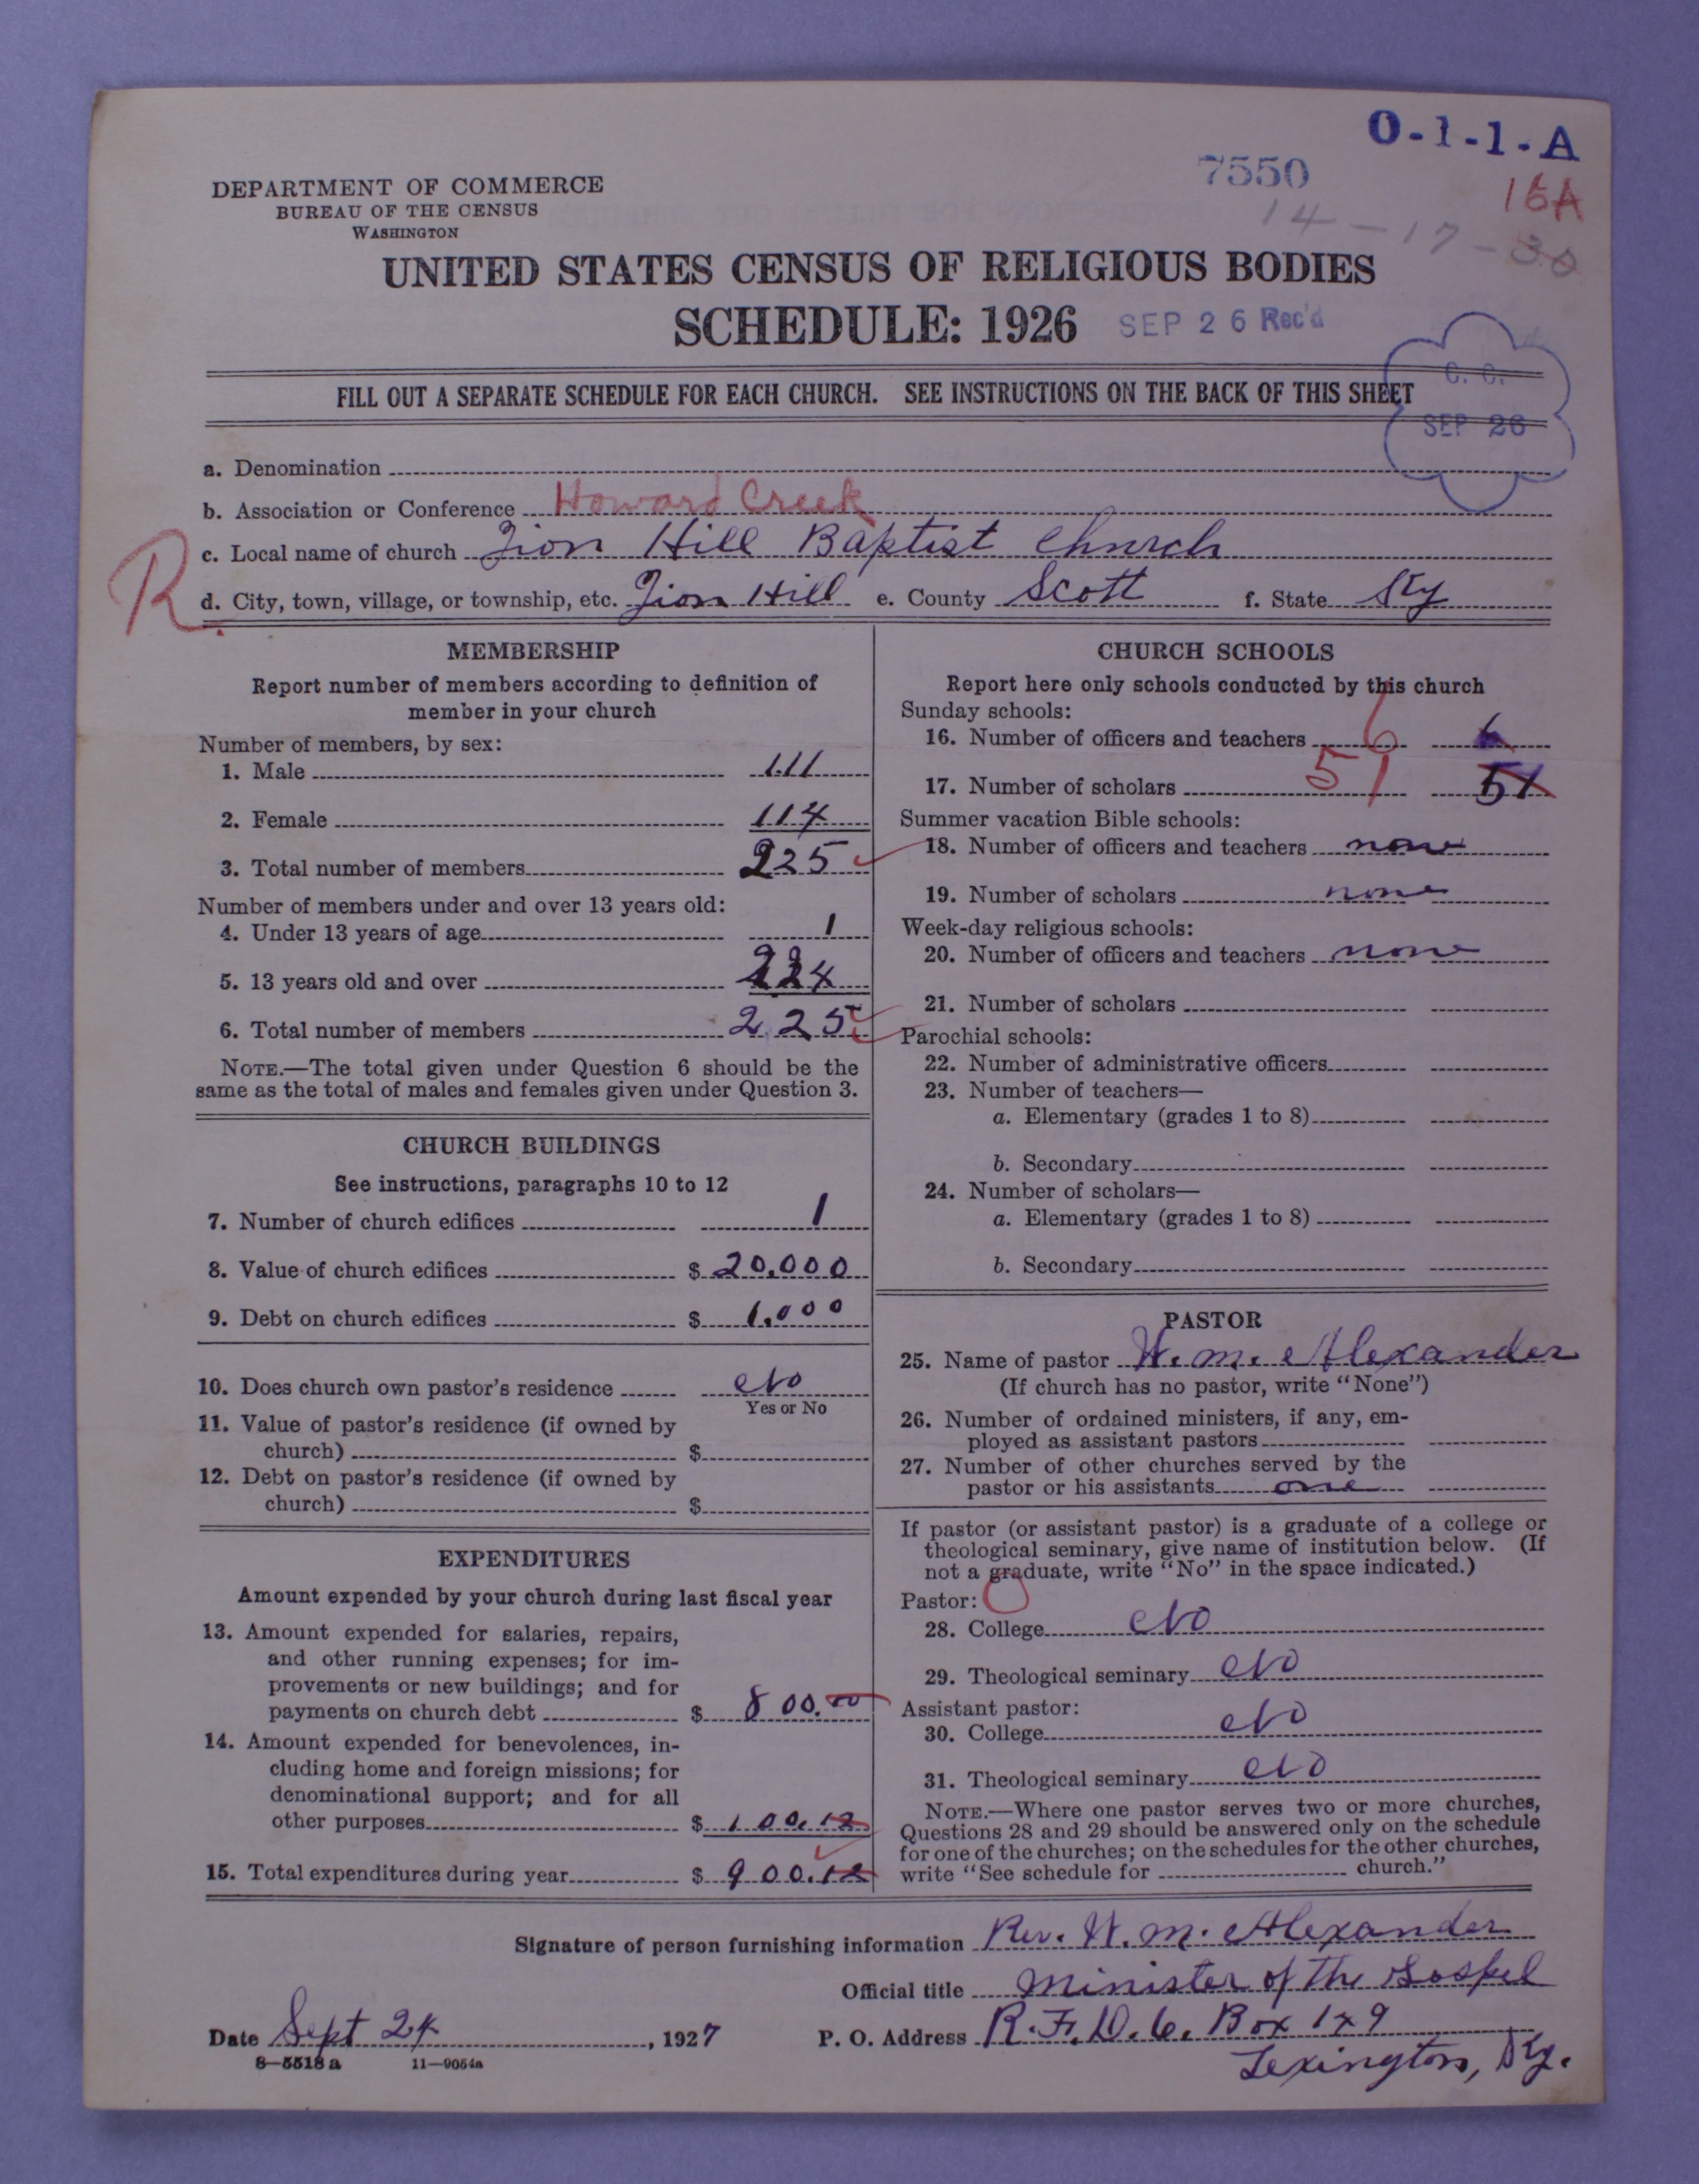 O-1-1-A
7550
15A
14-17-30
DEPARTMENT OF COMMERCE
BUREAU OF THE CENSUS
WASHINGTON
UNITED STATES CENSUS OF RELIGIOUS BODIES
SCHEDULE: 1926 SEP 26 Rec'd
C. C.
SEP 26
FILL OUT A SEPARATE SCHEDULE FOR EACH CHURCH. SEE INSTRUCTIONS ON THE BACK OF THIS SHEET
a. Denomination
b. Association or Conference Howard Creek
c. Local name of church Zion Hill Baptist Church
R.
d. City, town, village, or township, etc. Zion Hill e. County Scott f. State Ky
MEMBERSHIP
Report number of members according to definition of
member in your church
Number of members, by sex:
1. Male 111
2. Female 114
3. Total number of members 225
Number of members under and over 13 years old:
4. Under 13 years of age 1
5. 13 years old and over 224
6. Total number of members 225
NOTE.—The total given under Question 6 should be the
same as the total of males and females given under Question 3.
CHURCH BUILDINGS
See instructions, paragraphs 10 to 12
7. Number of church edifices 1
8. Value of church edifices $ 20,000
9. Debt on church edifices $ 1,000
10. Does church own pastor's residence No
Yes or No
11. Value of pastor's residence (if owned by
church) $
12. Debt on pastor's residence (if owned by
church) $
EXPENDITURES
Amount expended by your church during last fiscal year
13. Amount expended for salaries, repairs,
and other running expenses; for im-
provements or new buildings; and for
payments on church debt $ 800.00
14. Amount expended for benevolences, in-
cluding home and foreign missions; for
denominational support; and for all
other purposes $ 100.12
15. Total expenditures during year $ 900.12
CHURCH SCHOOLS
Report here only schools conducted by this church
Sunday schools:
16. Number of officers and teachers 6 6
17. Number of scholars 51 51
Summer vacation Bible schools:
18. Number of officers and teachers none
19. Number of scholars none
Week-day religious schools:
20. Number of officers and teachers none
21. Number of scholars
Parochial schools:
22. Number of administrative officers
23. Number of teachers—
a. Elementary (grades 1 to 8)
b. Secondary
24. Number of scholars—
a. Elementary (grades 1 to 8)
b. Secondary
PASTOR
25. Name of pastor W. M. Alexander
(If church has no pastor, write "None")
26. Number of ordained ministers, if any, em-
ployed as assistant pastors
27. Number of other churches served by the
pastor or his assistants one
If pastor (or assistant pastor) is a graduate of a college or
theological seminary, give name of institution below. (If
not a graduate, write "No" in the space indicated.)
Pastor: 0
28. College No
29. Theological seminary No
Assistant pastor:
30. College No
31. Theological seminary No
NOTE.—Where one pastor serves two or more churches,
Questions 28 and 29 should be answered only on the schedule
for one of the churches; on the schedules for the other churches,
write "See schedule for church."
Signature of person furnishing information Rev. W. M. Alexander
Official title Minister of the Gospel
Date Sept 24, 1927 P. O. Address R.F.D. 6. Box 149
Lexington, Ky.
8-5518a 11-9054a